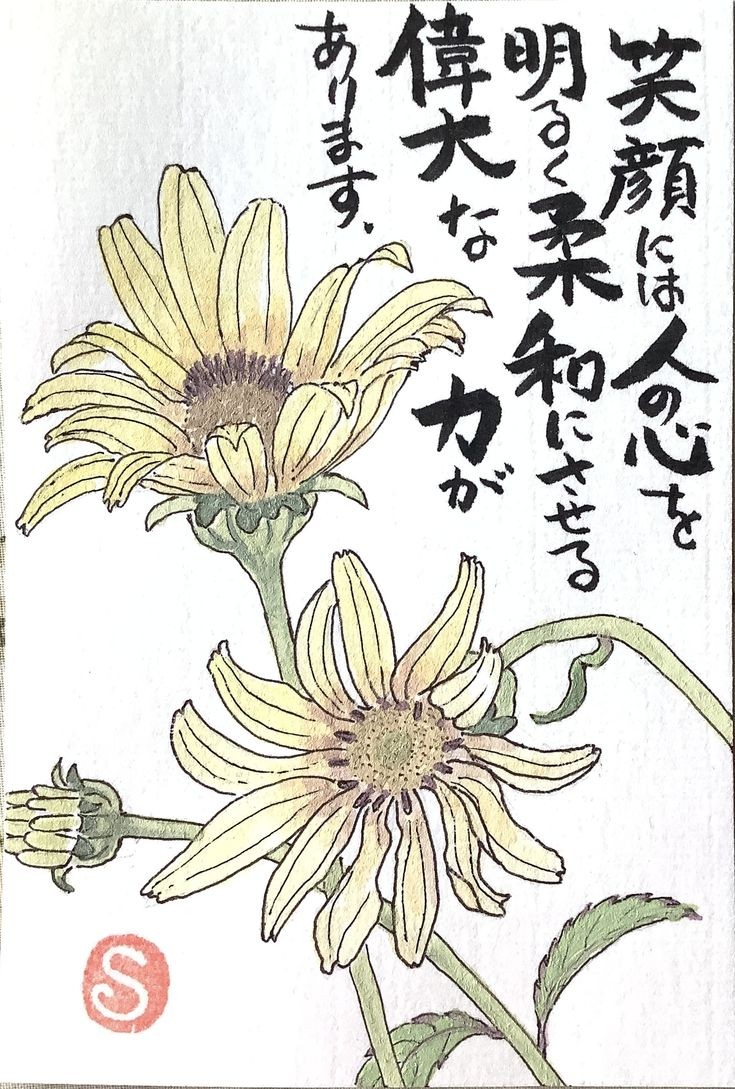 笑顔には人の心を
明るく柔和にさせる
偉大な力が
あります.
S